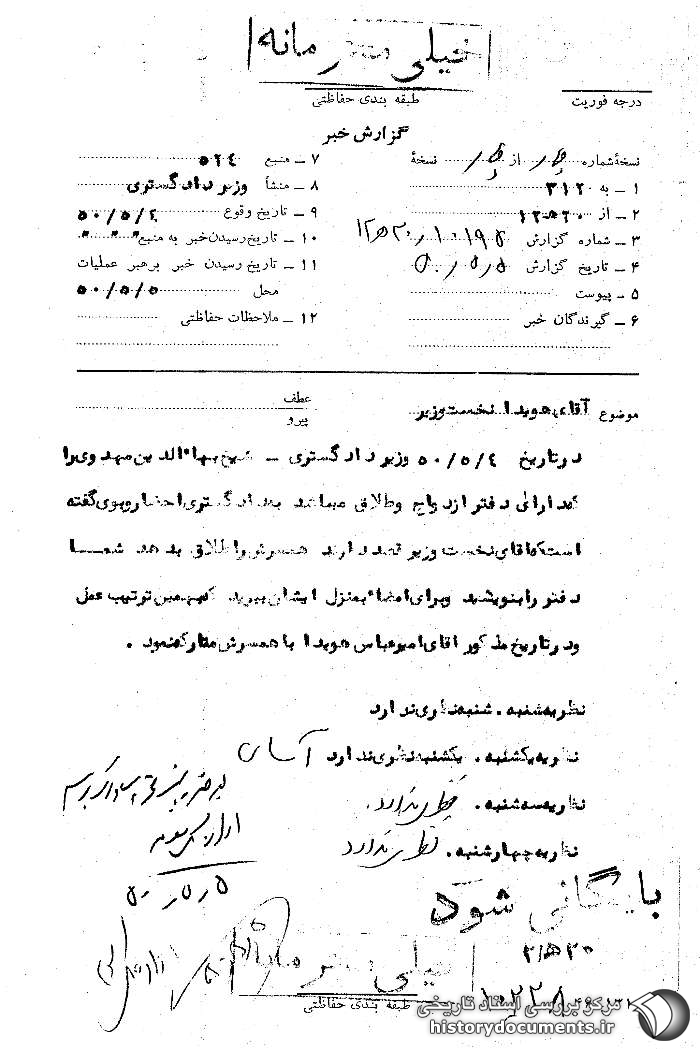 خیلی محرمانه
طبقه بندی حفاظتی
درجه فوریت
گزارش خبر
نسخهٔ شماره از نسخهٔ
۱ ـ به ۳۱۲
۲ ـ از ۲۰ ﻫ ۱۲
۳ ـ شماره گزارش ۱۰۱۹۵ / ۲۰ ﻫ ۱۲
۴ ـ تاریخ گزارش ۵۰/۵/۵
۵ ـ پیوست
۶ ـ گیرندگان خبر
۷ ـ منبع ۵۲۴
۸ ـ منشأ وزیر دادگستری
۹ ـ تاریخ وقوع ۵۰/۵/۴
۱۰ ـ تاریخ رسیدن خبر به منبع " " "
۱۱ ـ تاریخ رسیدن خبر برهبر عملیات
محل ۵۰/۵/۵
۱۲ ـ ملاحظات حفاظتی
موضوع آقای هویدا نخست وزیر
عطف
پیرو
در تاریخ ۵۰/۵/۴ وزیر دادگستری ـ شیخ بهاالدین مهدوی را
که دارای دفتر ازدواج وطلاق میباشد بدادگستری احضار وبوی گفته
است که اقای نخست وزیر قصد دارند همسرش را طلاق بدهد شمـا
دفتر را بنویسید وبرای امضا بمنزل ایشان ببرید که بهمین ترتیب عمل
ودر تاریخ مذکور اقای امیرعباس هویدا با همسرش متارکه نمود .
نظریه شنبه . شنبه نظری ندارد
نظریه یکشنبه . یکشنبه نظری ندارد آسای
نظریه سه شنبه . نظری ندارد .
نظریه چهارشنبه . نظری ندارد
۵۰/۵/۵
بایگانی شود
۲۰ ﻫ ۳
خیلی محرمانه
طبقه بندی حفاظتی
مرکز بررسی اسناد تاریخی
historydocuments.ir